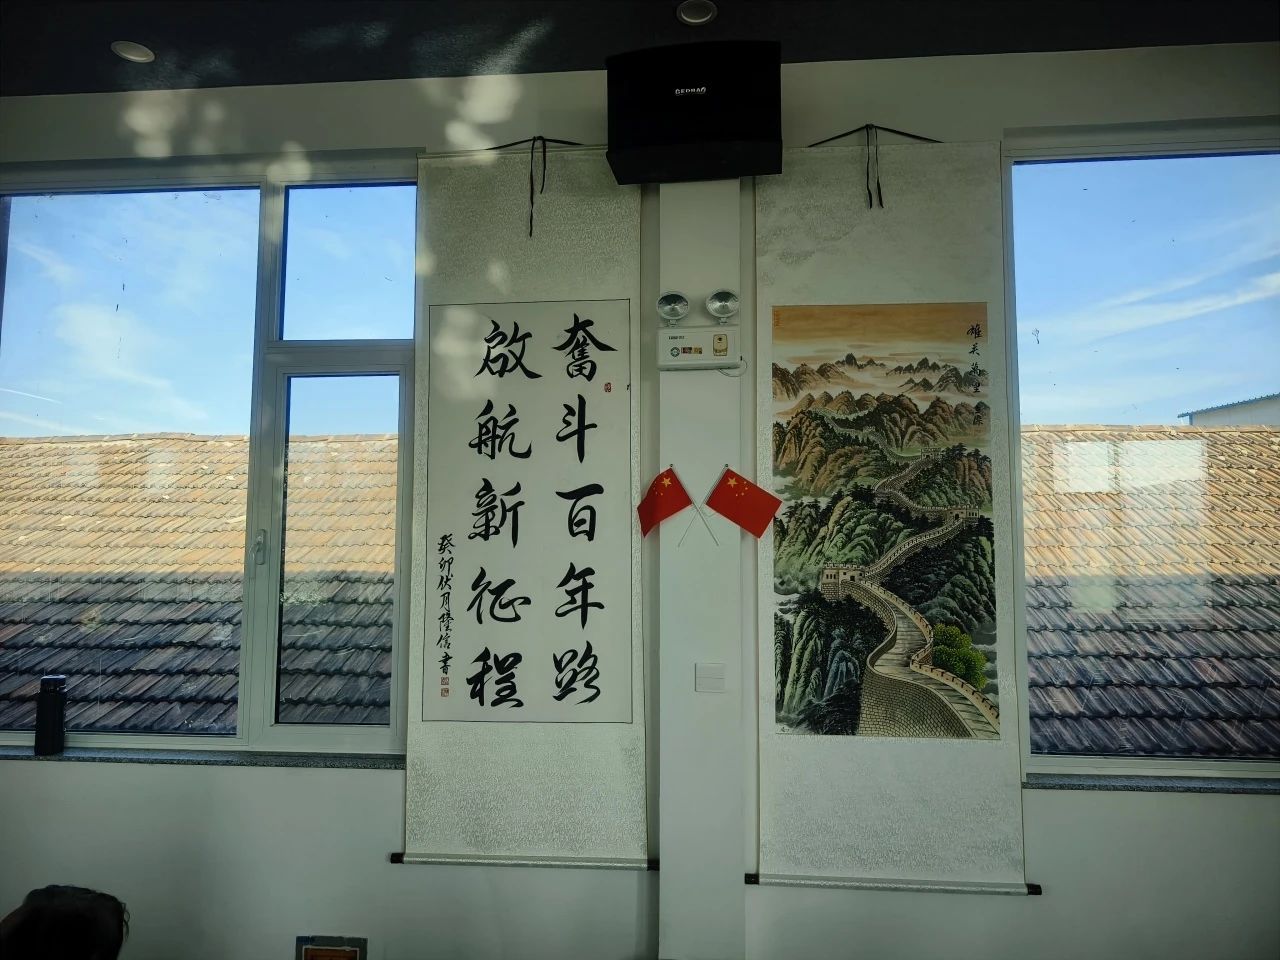 奮斗百年路
啟航新征程
癸卯伏月陸信書
雄关萬里
GEDBAO